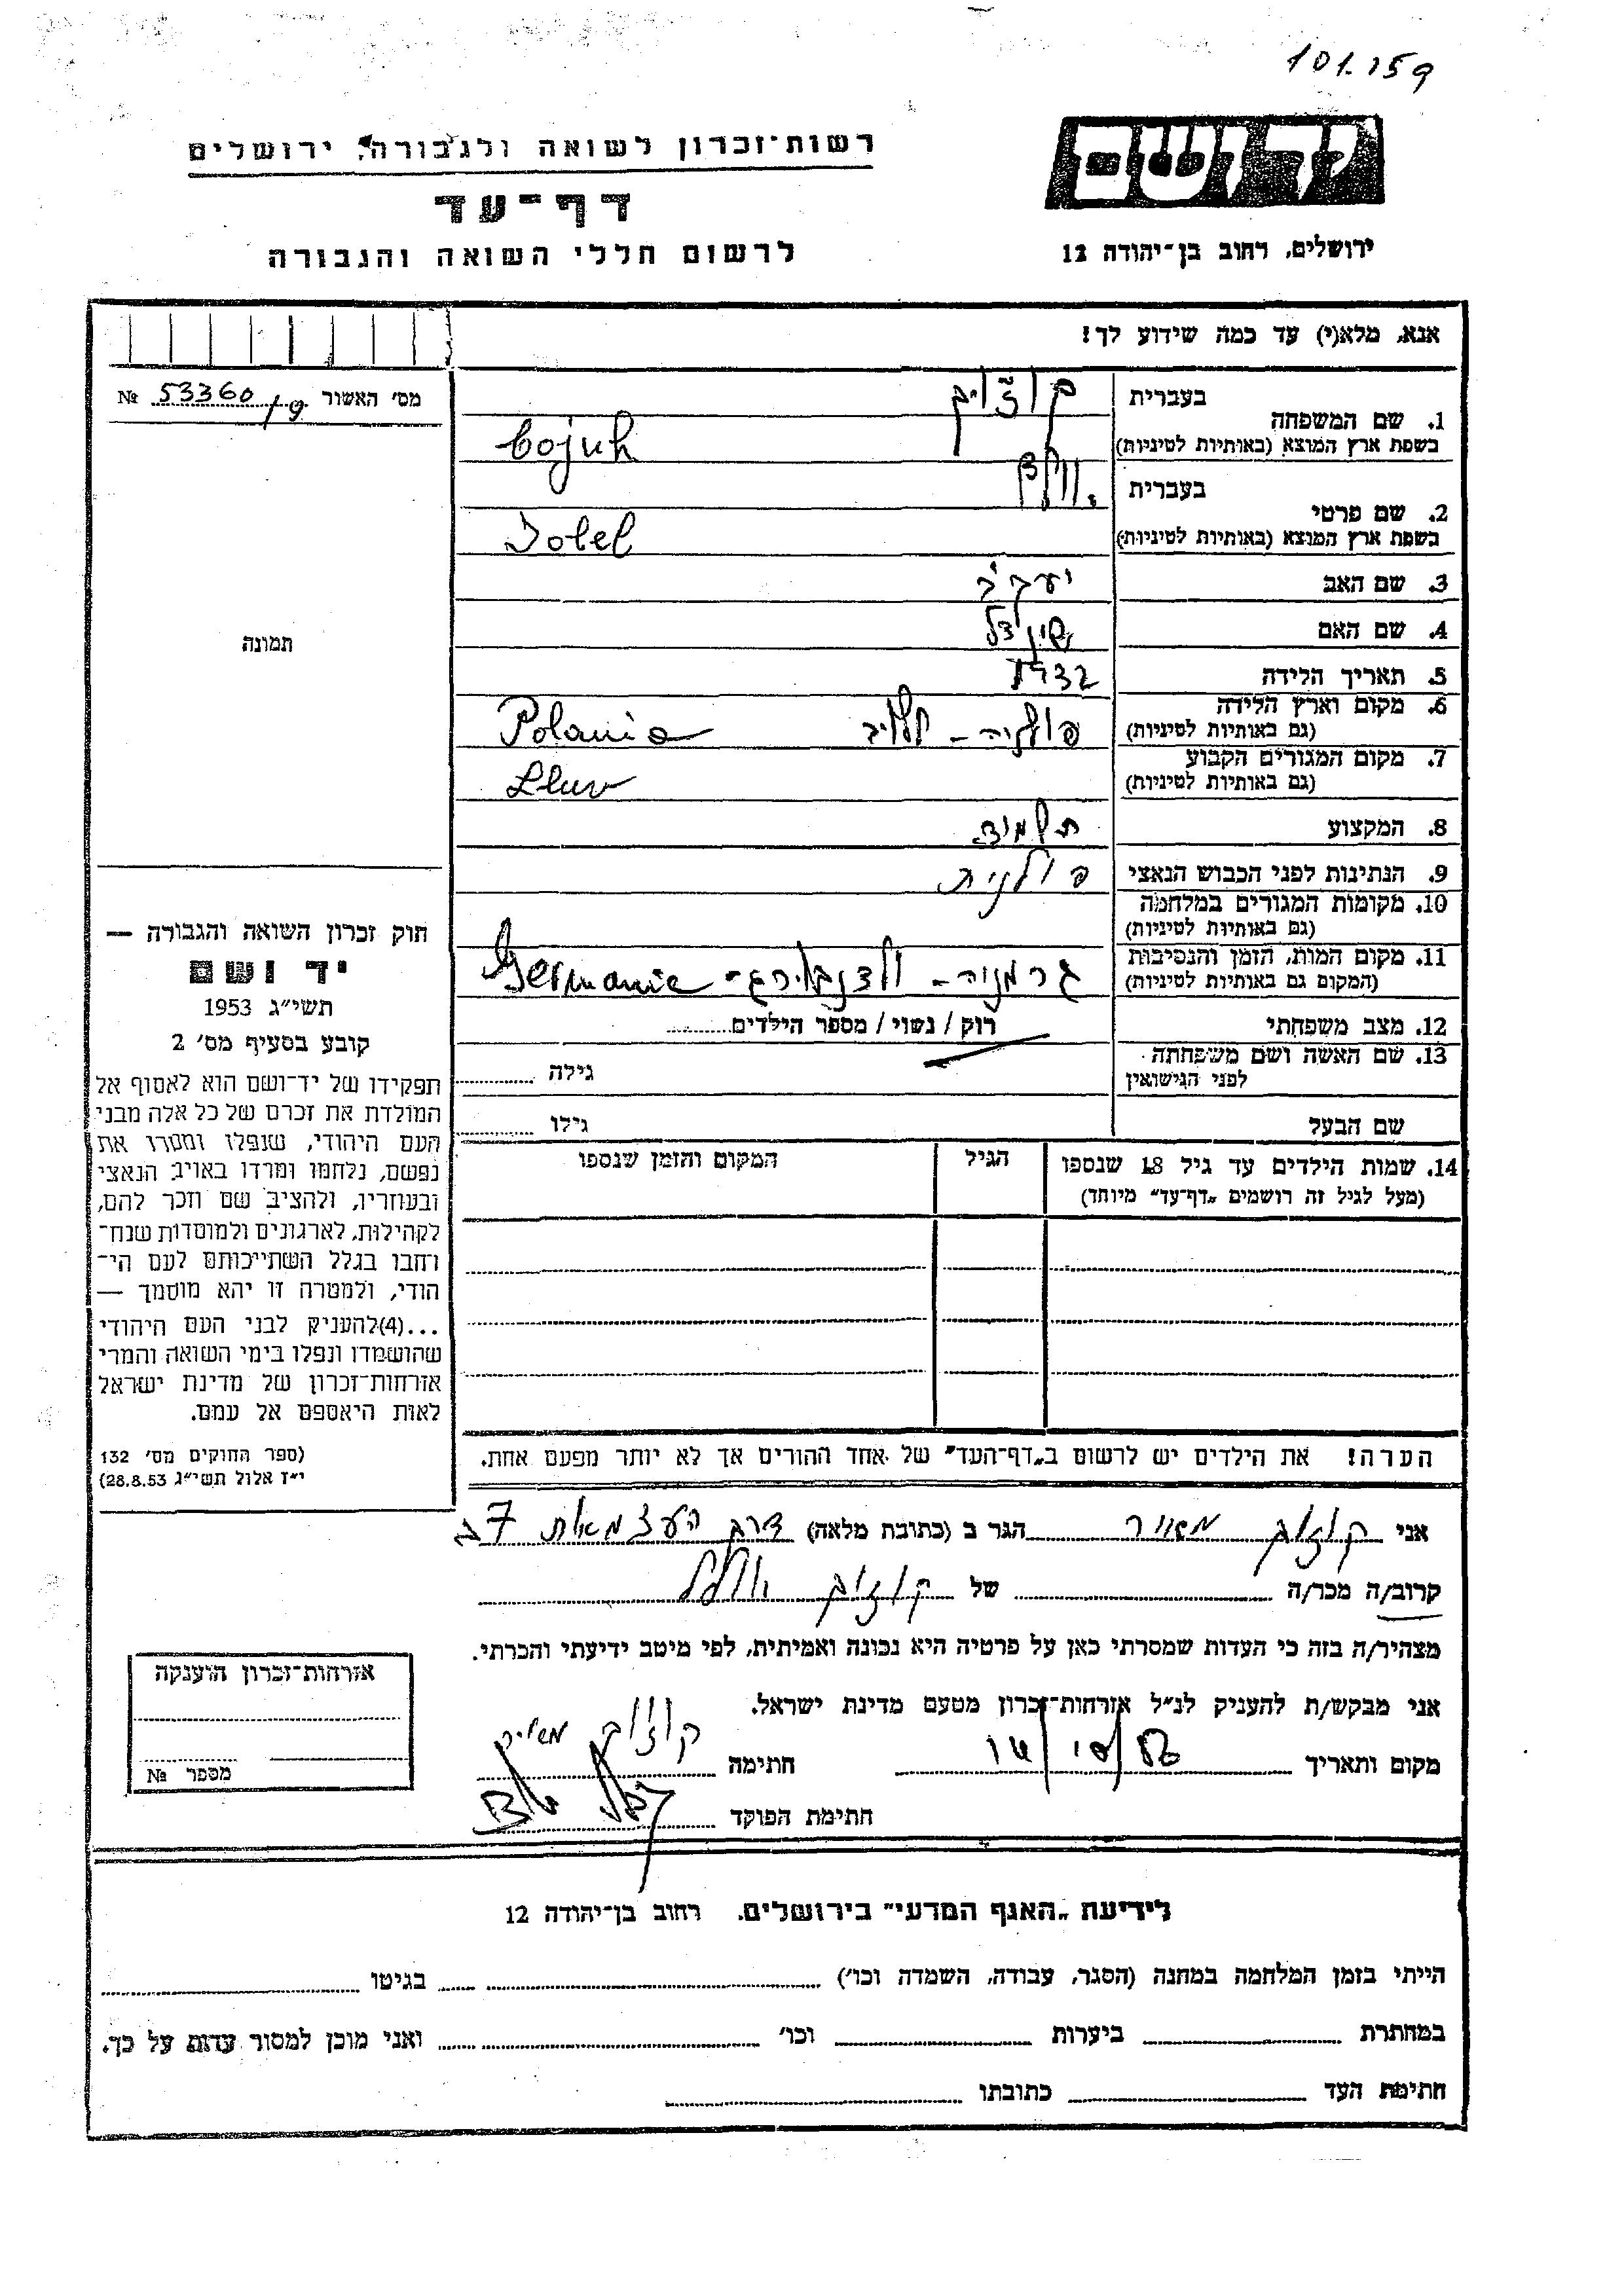 101.159
יד ושם
רשות־זכרון לשואה ולגבורה, ירושלים
דף־עד
לרשום חללי השואה והגבורה
ירושלים, רחוב בן־יהודה 12
אנא, מלא(י) עד כמה שידוע לך!
מס' האשור № 53360/9
1. שם המשפחה
בעברית
בשפת ארץ המוצא (באותיות לטיניות) Cojuk
2. שם פרטי
בעברית
בשפת ארץ המוצא (באותיות לטיניות)
3. שם האב יעקב
4. שם האם
5. תאריך הלידה 1932
6. מקום וארץ הלידה
(גם באותיות לטיניות) פולניה - Polania
7. מקום המגורים הקבוע
(גם באותיות לטיניות)
8. המקצוע תלמיד
9. הנתינות לפני הכבוש הנאצי פולנית
10. מקומות המגורים במלחמה
(גם באותיות לטיניות)
11. מקום המות, הזמן והנסיבות
(המקום גם באותיות לטיניות) גרמניה - Germanie
12. מצב משפחתי רוק / נשוי / מספר הילדים
13. שם האשה ושם משפחתה
לפני הנישואין גילה
שם הבעל גילו
14. שמות הילדים עד גיל 18 שנספו הגיל המקום והזמן שנספו
(מעל לגיל זה רושמים "דף־עד" מיוחד)
הערה! את הילדים יש לרשום ב"דף־העד" של אחד ההורים אך לא יותר מפעם אחת.
תמונה
חוק זכרון השואה והגבורה —
יד ושם
תשי"ג 1953
קובע בסעיף מס' 2
תפקידו של יד־ושם הוא לאסוף אל
המולדת את זכרם של כל אלה מבני
העם היהודי, שנפלו ומסרו את
נפשם, נלחמו ומרדו באויב הנאצי
ובעוזריו, ולהציב שם וזכר להם,
לקהילות, לארגונים ולמוסדות שנח־
רחבו בגלל השתייכותם לעם הי־
הודי, ולמטרה זו יהא מוסמך —
...(4)להעניק לבני העם היהודי
שהושמדו ונפלו בימי השואה והמרי
אזרחות־זכרון של מדינת ישראל
לאות היאספם אל עמם.
(ספר החוקים מס' 132
י"ז אלול תשי"ג 28.8.53)
אני הגר ב (כתובת מלאה) דרך העצמאות 7
קרוב/ה מכר/ה של
מצהיר/ה בזה כי העדות שמסרתי כאן על פרטיה היא נכונה ואמיתית, לפי מיטב ידיעתי והכרתי.
אני מבקש/ת להעניק לנ"ל אזרחות־זכרון מטעם מדינת ישראל.
מקום ותאריך חתימה
חתימת הפוקד
אזרחות־זכרון הוענקה
מספר №
לידיעת "האגף המדעי" בירושלים, רחוב בן־יהודה 12
הייתי בזמן המלחמה במחנה (הסגר, עבודה, השמדה וכו') בגיטו
במחתרת ביערות וכו' ואני מוכן למסור עדות על כך.
חתימת העד כתובתו